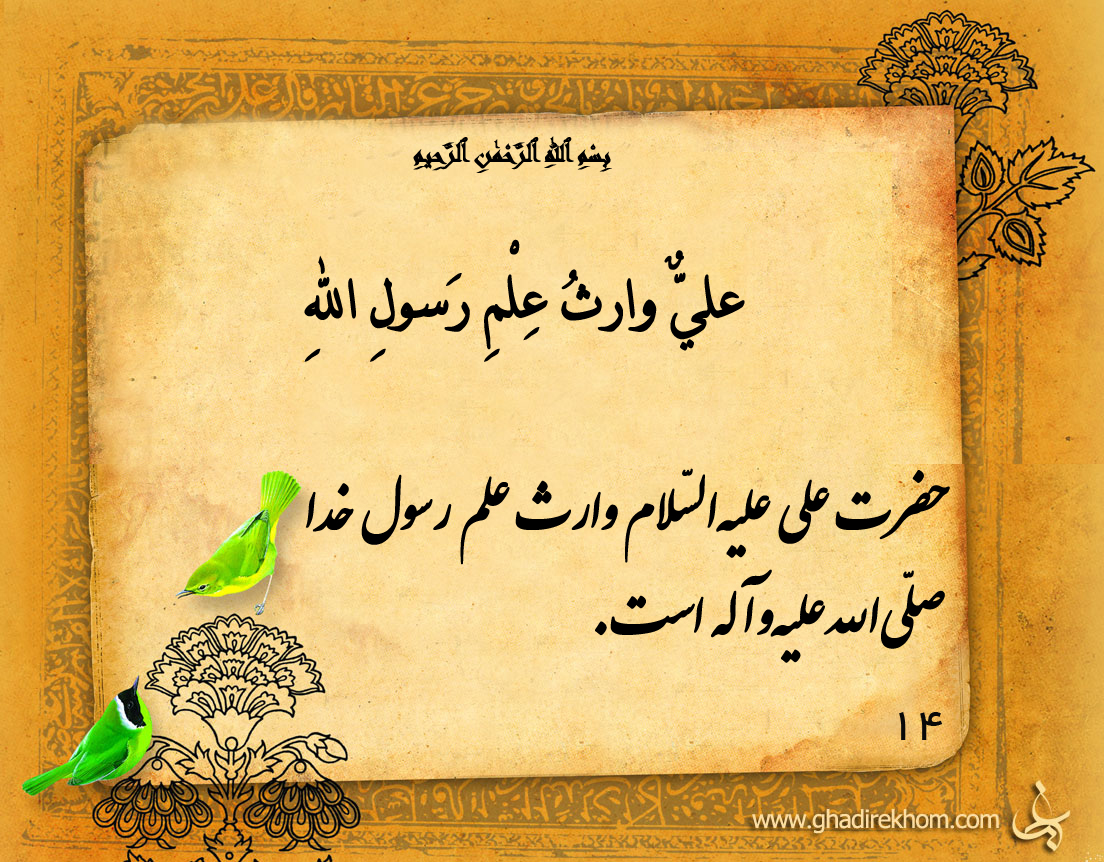 بِسْمِ اللهِ الرَّحْمٰنِ الرَّحِيمِ
عليٌّ وارثُ عِلْمِ رَسولِ اللهِ
حضرت علی علیه‌السّلام وارث علم رسول خدا
صلّی‌الله علیه‌وآله است.
۱۴
www.ghadirekhom.com